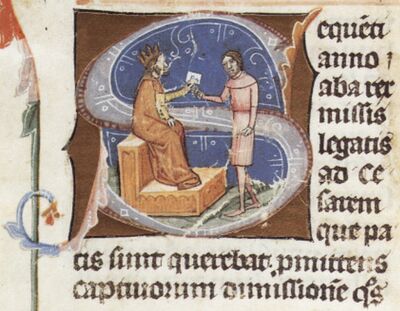 Sequēti
anno
aba rex
missis
legatis
ad Ce
sarem
que pa
cis sunt querebat. ꝓmittens
captiuorum dimissionē q̄s